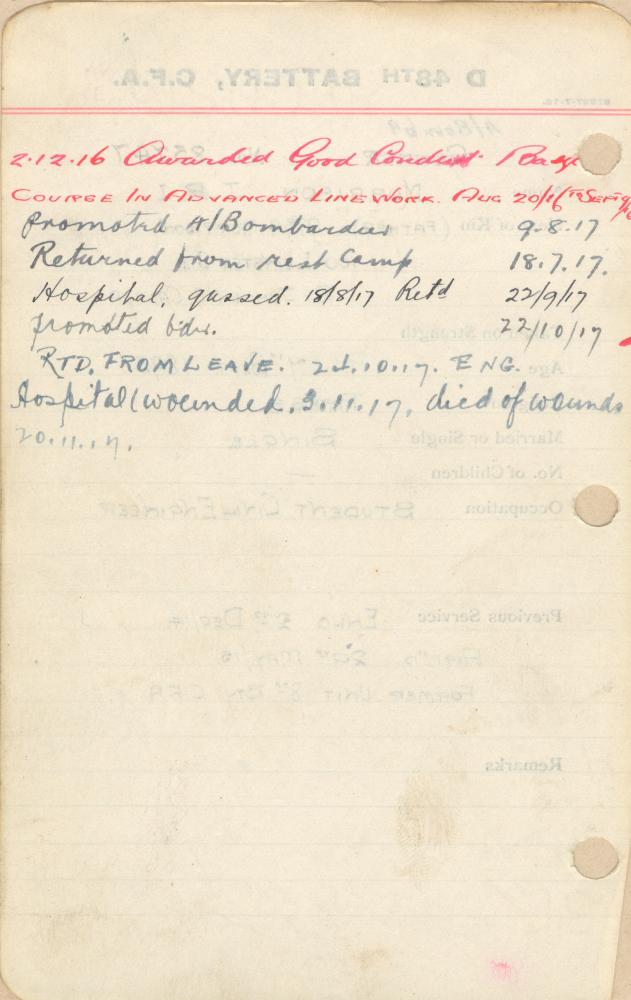 2.12.16 Awarded Good Conduct Badge
COURSE IN ADVANCED LINEWORK. AUG 20/16 TO SEPT
promoted A/Bombardier 9.8.17
Returned from rest Camp 18.7.17.
Hospital, gassed. 18/8/17 Retd 22/9/17
promoted bdr. 22/10/17
RTD. FROM LEAVE. 10.17. ENG.
Hospital (wounded, 3.11.17, died of wounds
20.11.17.